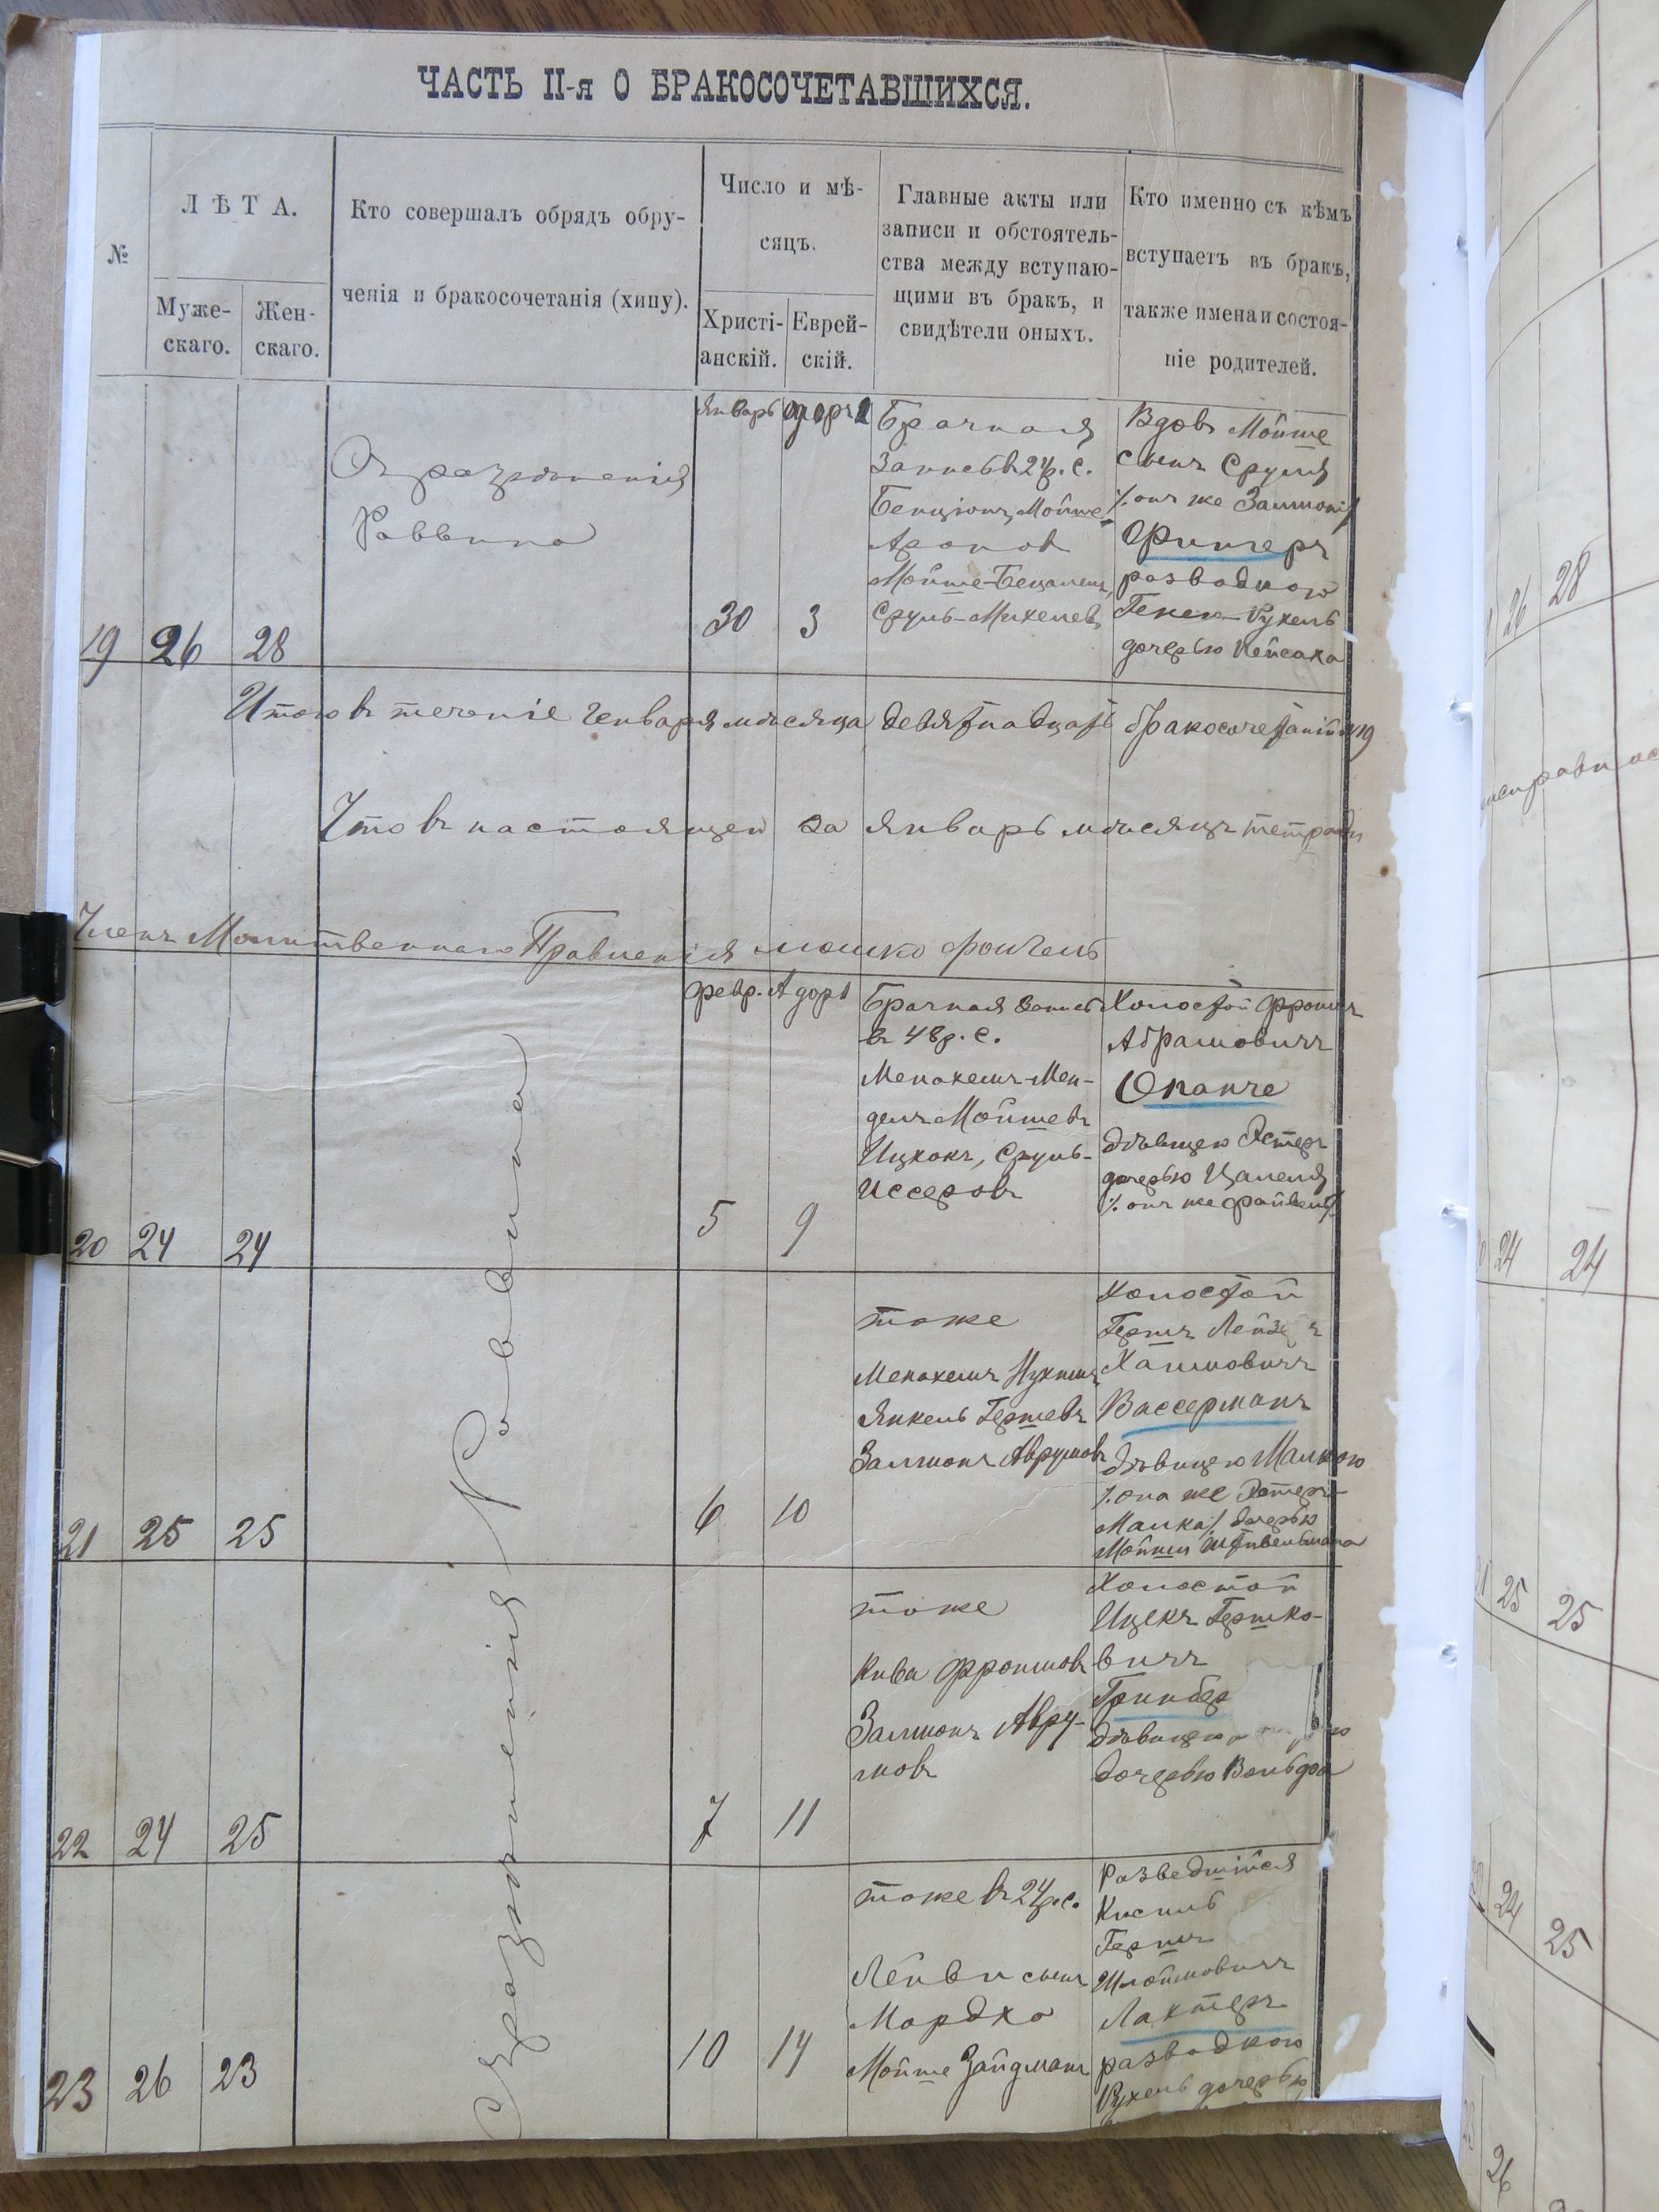 ЧАСТЬ II-я О БРАКОСОЧЕТАВШИХСЯ.
№
ЛѢТА.
Муже-
скаго.
Жен-
скаго.
Кто совершалъ обрядъ обру-
ченія и бракосочетанія (хипу).
Число и мѣ-
сяцъ.
Христі-
анскій.
Еврей-
скій.
Главные акты или
записи и обстоятель-
ства между вступаю-
щими въ бракъ, и
свидѣтели оныхъ.
Кто именно съ кѣмъ
вступаетъ въ бракъ,
также имена и состоя-
ніе родителей.
19
26
28
Съ разрѣшенія
Раввина
Январь
30
3
Брачная
Запись въ 24 р. с.
Бенціонъ, Мойше-
Аронов
Мойше-Бецалель,
Сруль-Михелевъ
Вдовъ Мойше
сынъ Сруля
/. онъ же Залмона ./
Фингеръ
разводкою
Рухель
дочерью Пейсаха
Итого въ теченіе Генваря мѣсяца девятнадцать бракосочетаній №19
Что въ настоящей за январь мѣсяцъ тетради
Членъ Молитвенного Правленія мошко фойгель
20
24
24
Съ разрѣшенія Раввина
февр.
Адоръ
5
9
Брачная Запись
въ 48 р. с.
Менахемъ-Мен-
дель Мойшевъ
Ицхокъ, Сруль-
Иссеровъ
Холостой Фроимъ
Абрамовичъ
Окопче
дѣвицею Эстеръ
дочерью Цалеля
/. онъ же Файвель ./
21
25
25
6
10
тоже
Менахемъ Нухимъ
Янкель Гершевъ
Залмонъ Аврумовъ
Холостой
Гершъ
Хаимовичъ
Вассерманъ
дѣвицею Малкою
/. она же Эстеръ-
Малка ./ дочерью
22
24
25
7
11
тоже
Кива Фроимовъ
Залмонъ Авру-
мовъ
Холостой
Ицекъ Гершко-
вичъ
Гринбер
дѣвицею
дочерью Вольфа
23
26
23
10
14
тоже въ 24 р. с.
Лейви сынъ
Мордхо
Мойше Зайдманъ
Разведшійся
Кисиль
Гершъ
Шлоймовичъ
Лахтеръ
разводкою
Рухель дочерью
26
28
24
24
25
25
24
25
26